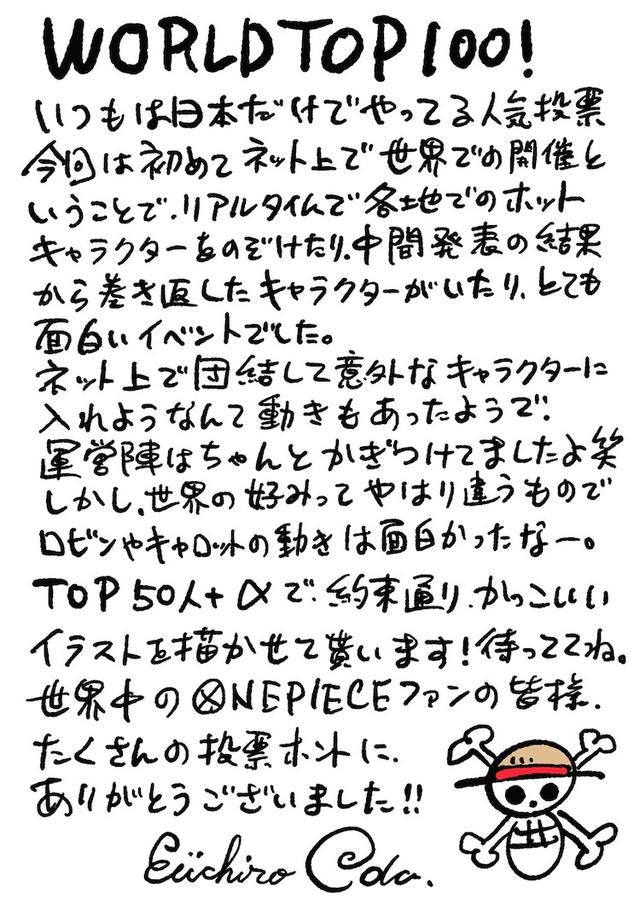 WORLD TOP 100!
いつもは日本だけでやってる人気投票
今回は初めてネット上で世界での開催と
いうことで、リアルタイムで各地でのホット
キャラクターをのぞけたり、中間発表の結果
から巻き返したキャラクターがいたり、とても
面白いイベントでした。
ネット上で団結して意外なキャラクターに
入れようなんて動きもあったようで、
運営陣はちゃんとかぎつけてましたよ笑
しかし、世界の好みってやはり違うもので
ロビンやキャロットの動きは面白かったなー。
TOP 50人+αで、約束通り、かっこいい
イラストを描かせて貰います!待っててね。
世界中のONE PIECEファンの皆様、
たくさんの投票ホントに、
ありがとうございました!!
Eiichiro Oda.